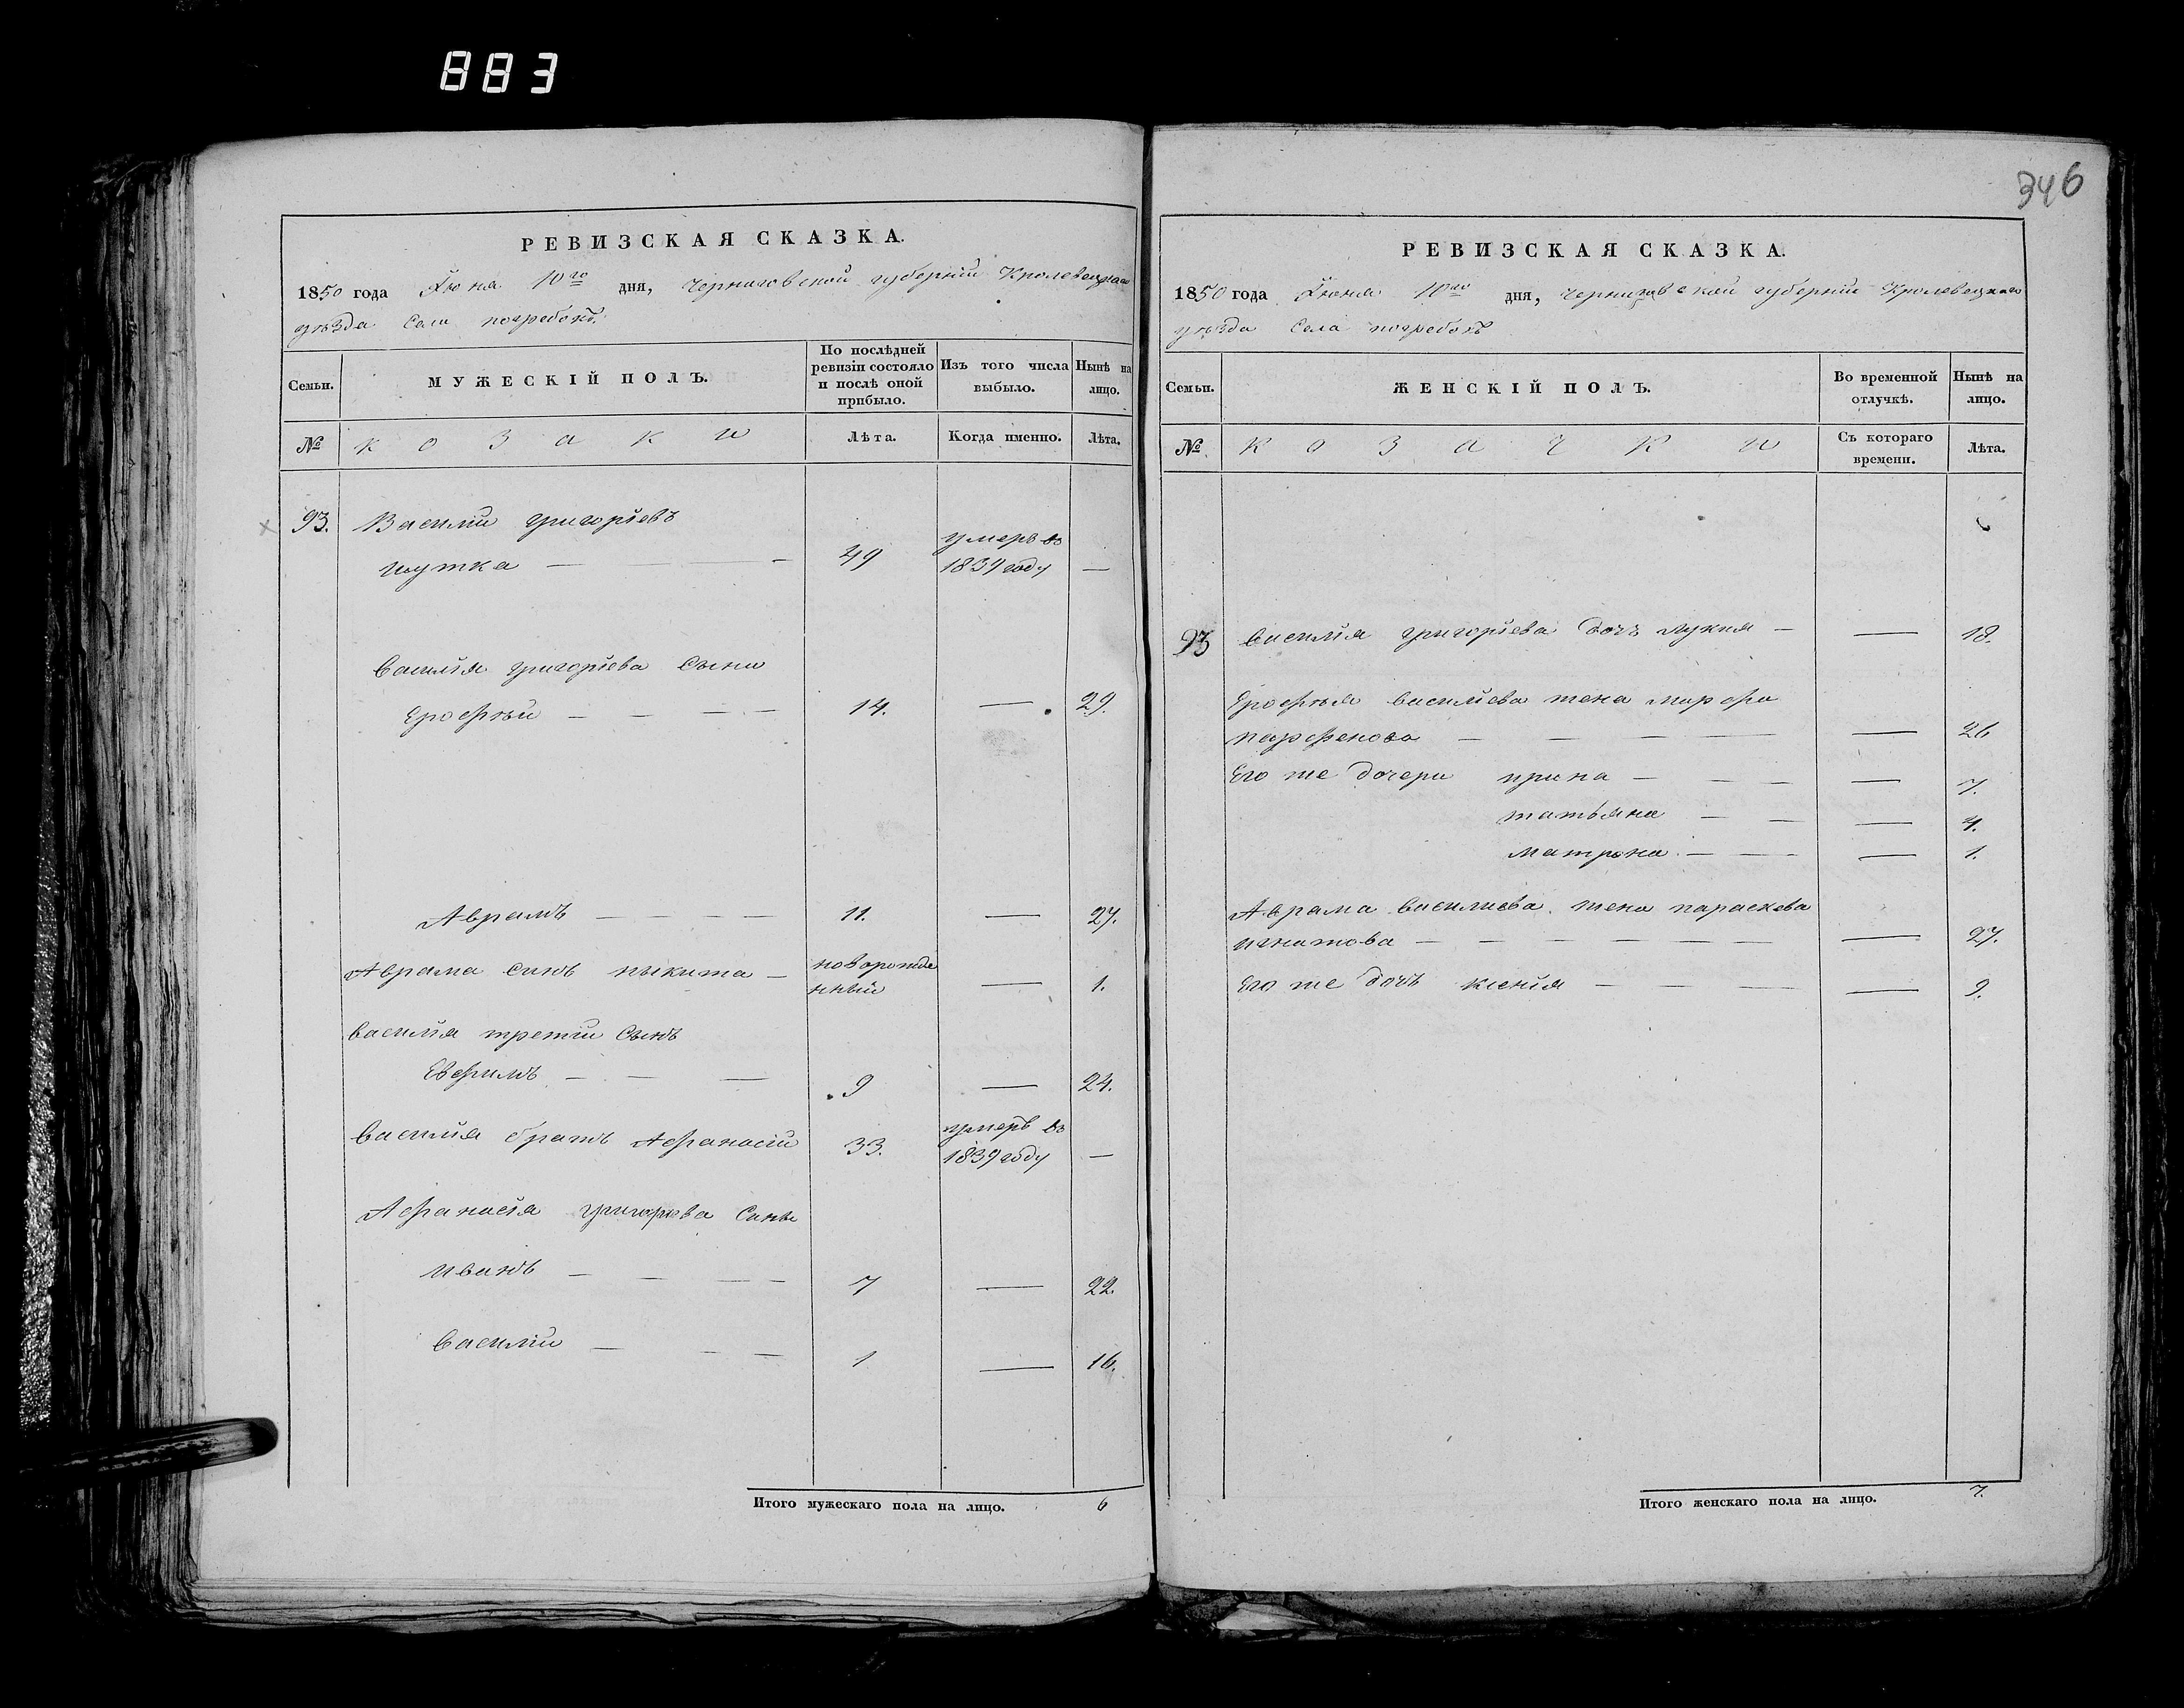 883
РЕВИЗСКАЯ СКАЗКА.
1850 года Июня 10го дня, Черниговской губерніи Кролевецкаго
уѣзда Села погребокъ
Семьи.
МУЖЕСКІЙ ПОЛЪ.
По послѣдней ревизіи состояло и послѣ оной прибыло.
Изъ того числа выбыло.
Нынѣ на лицо.
№
козаки
Лѣта.
Когда именно.
Лѣта.
93. Василии григоріевъ
шутка — 49 умеръ во 1839 году —
Василія григоріева Сыни
Ерофѣй — 14. — 29.
Аврамъ — 11. — 27.
Аврама синъ никита — новорожде нный — 1.
василія третии Сынъ
Евфимъ — 9 — 24.
василия братъ Афанасіи 33. умеръ во 1839 году —
Афанасія григорева Сини
иванъ — 7 — 22.
василіи — 1 — 16.
Итого мужескаго пола на лицо. 6
346
РЕВИЗСКАЯ СКАЗКА.
1850 года Июня 10го дня, черниговской губерніи Кролевецкаго
уѣзда Села погребокъ
Семьи.
ЖЕНСКІЙ ПОЛЪ.
Во временной отлучкѣ.
Нынѣ на лицо.
№
козачки
Съ котораго времени.
Лѣта.
93 василія григоріева дочъ лукия — — 18.
Ерофѣя василіева жена марфа
парфенова — — 26
Его же дочери ирина — — 7.
татьяна — — 4.
матрона — — 1.
Аврама василиева жена параскева
игнатова — — 27.
Его же дочъ ксенія — — 9.
Итого женскаго пола на лицо. 7.